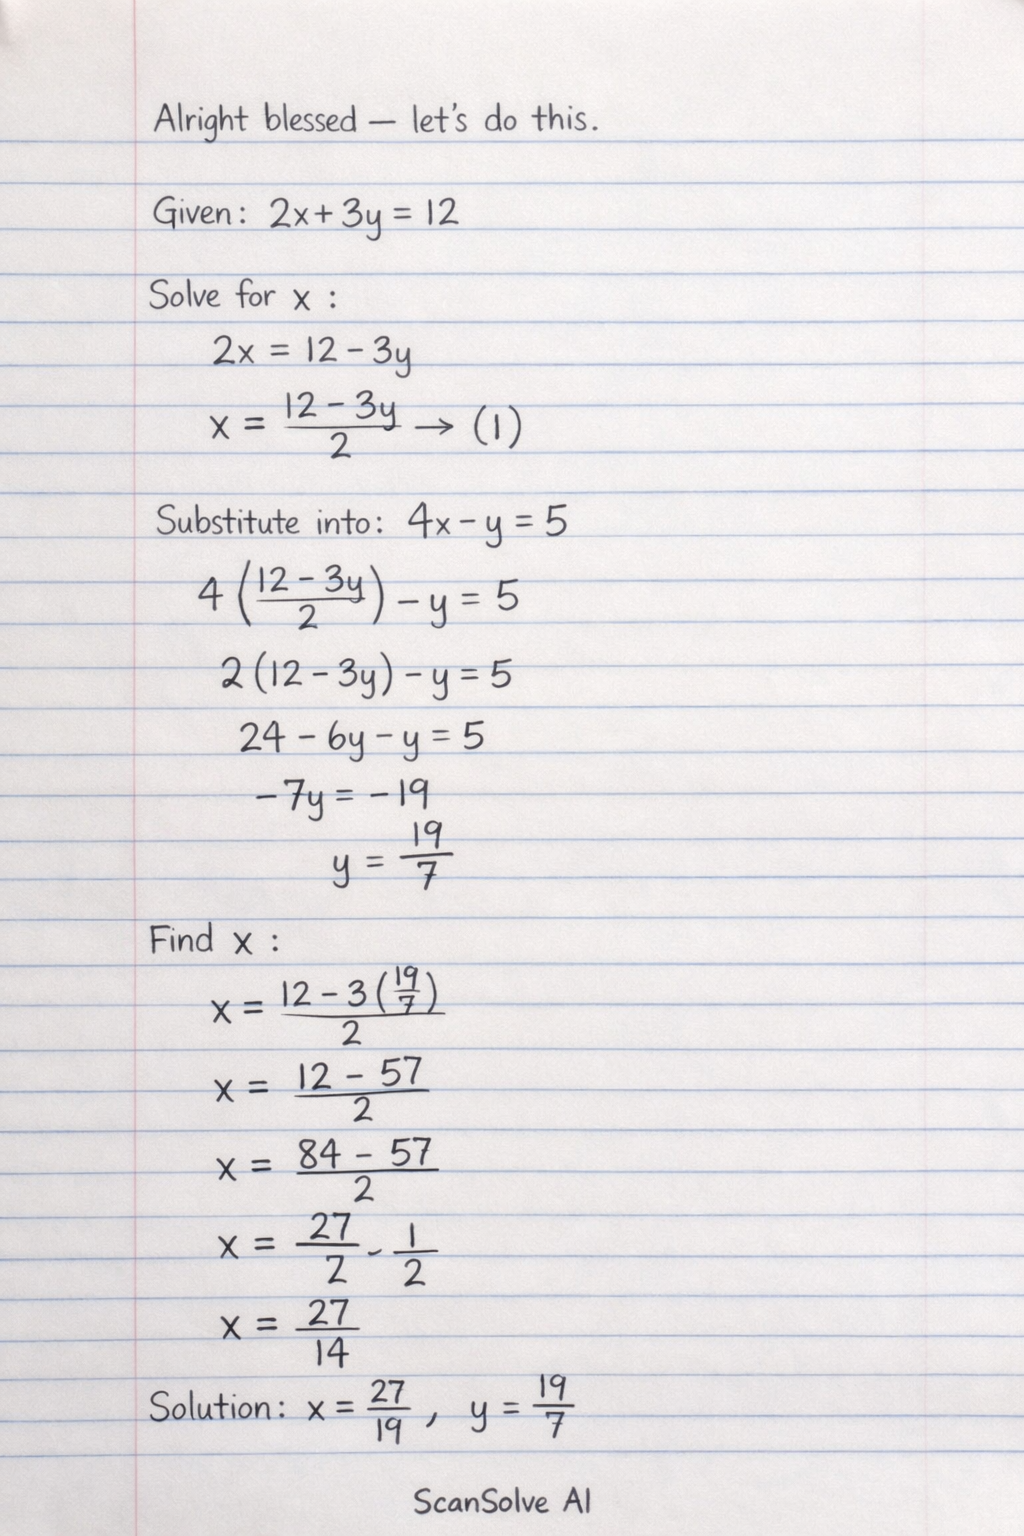 Alright blessed — let's do this.
Given: 2x + 3y = 12
Solve for x :
2x = 12 - 3y
x = (12 - 3y)/2 → (1)
Substitute into: 4x - y = 5
4((12 - 3y)/2) - y = 5
2(12 - 3y) - y = 5
24 - 6y - y = 5
-7y = -19
y = 19/7
Find x :
x = (12 - 3(19/7))/2
x = (12 - 57)/2
x = (84 - 57)/2
x = 27/2 - 1/2
x = 27/14
Solution: x = 27/19 , y = 19/7
ScanSolve AI